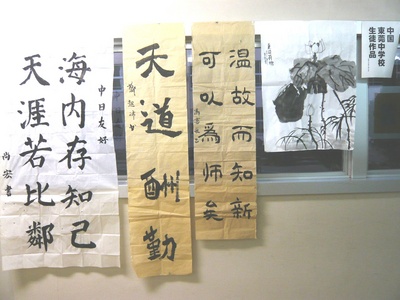 中国
東莞中学校
生徒作品
温故而知新
可以為師矣
天道酬勤
中日友好
海内存知己
天涯若比鄰
尚宏書